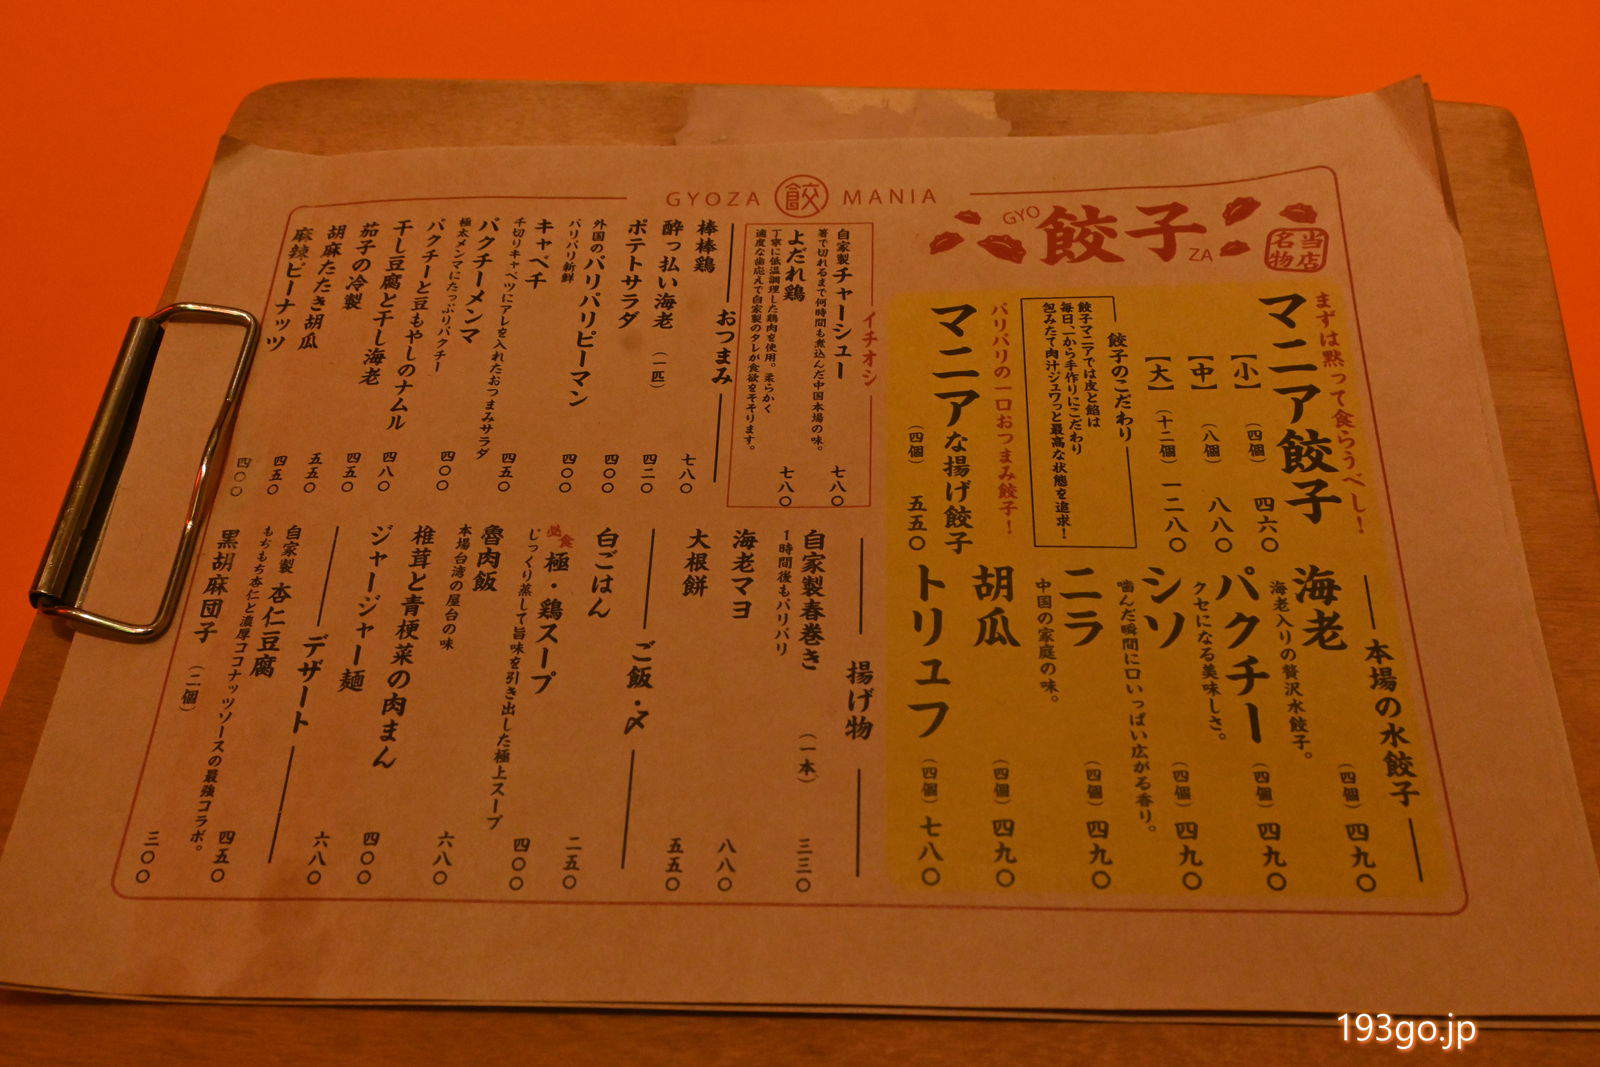 GYOZA 餃 MANIA
GYO 餃子 ZA
当店名物
まずは黙って食らうべし！
マニア餃子
【小】（四個）四六〇
【中】（八個）八八〇
【大】（十二個）一二八〇
餃子のこだわり
餃子マニアでは皮と餡は
毎日、一から手作りにこだわり
包みたて肉汁ジュワっと最高な状態を追求！
パリパリの一口おつまみ餃子！
マニアな揚げ餃子
（四個）五五〇
本場の水餃子
海老（四個）四九〇
海老入りの贅沢水餃子。
パクチー（四個）四九〇
クセになる美味しさ。
シソ（四個）四九〇
噛んだ瞬間に口いっぱい広がる香り。
ニラ（四個）四九〇
中国の家庭の味。
胡瓜（四個）四九〇
トリュフ（四個）七八〇
イチオシ
自家製チャーシュー 七八〇
箸で切れるまで何時間も煮込んだ中国本場の味。
よだれ鶏 七八〇
丁寧に低温調理した鶏肉を使用。柔らかく
適度な歯応えで自家製のタレが食欲をそそります。
おつまみ
棒棒鶏 七八〇
酔っ払い海老（一匹）四二〇
ポテトサラダ 四〇〇
外国のパリパリピーマン 四〇〇
パリパリ新鮮
キャベチ 四五〇
千切りキャベツにアレを入れたおつまみサラダ
パクチーメンマ 四〇〇
極太メンマにたっぷりパクチー
パクチーと豆もやしのナムル 四八〇
干し豆腐と干し海老 四五〇
茄子の冷製 五五〇
胡麻たたき胡瓜 四五〇
麻辣ピーナッツ 四〇〇
揚げ物
自家製春巻き（一本）三三〇
1時間後もパリパリ
海老マヨ 八八〇
大根餅 五五〇
ご飯・〆
白ごはん 二五〇
必食 極・鶏スープ 四〇〇
じっくり蒸して旨味を引き出した極上スープ
魯肉飯 六八〇
本場台湾の屋台の味
椎茸と青梗菜の肉まん 四〇〇
ジャージャー麺 六八〇
デザート
自家製 杏仁豆腐 四五〇
もちもち杏仁と濃厚ココナッツソースの最強コラボ。
黒胡麻団子（二個）三〇〇
193go.jp